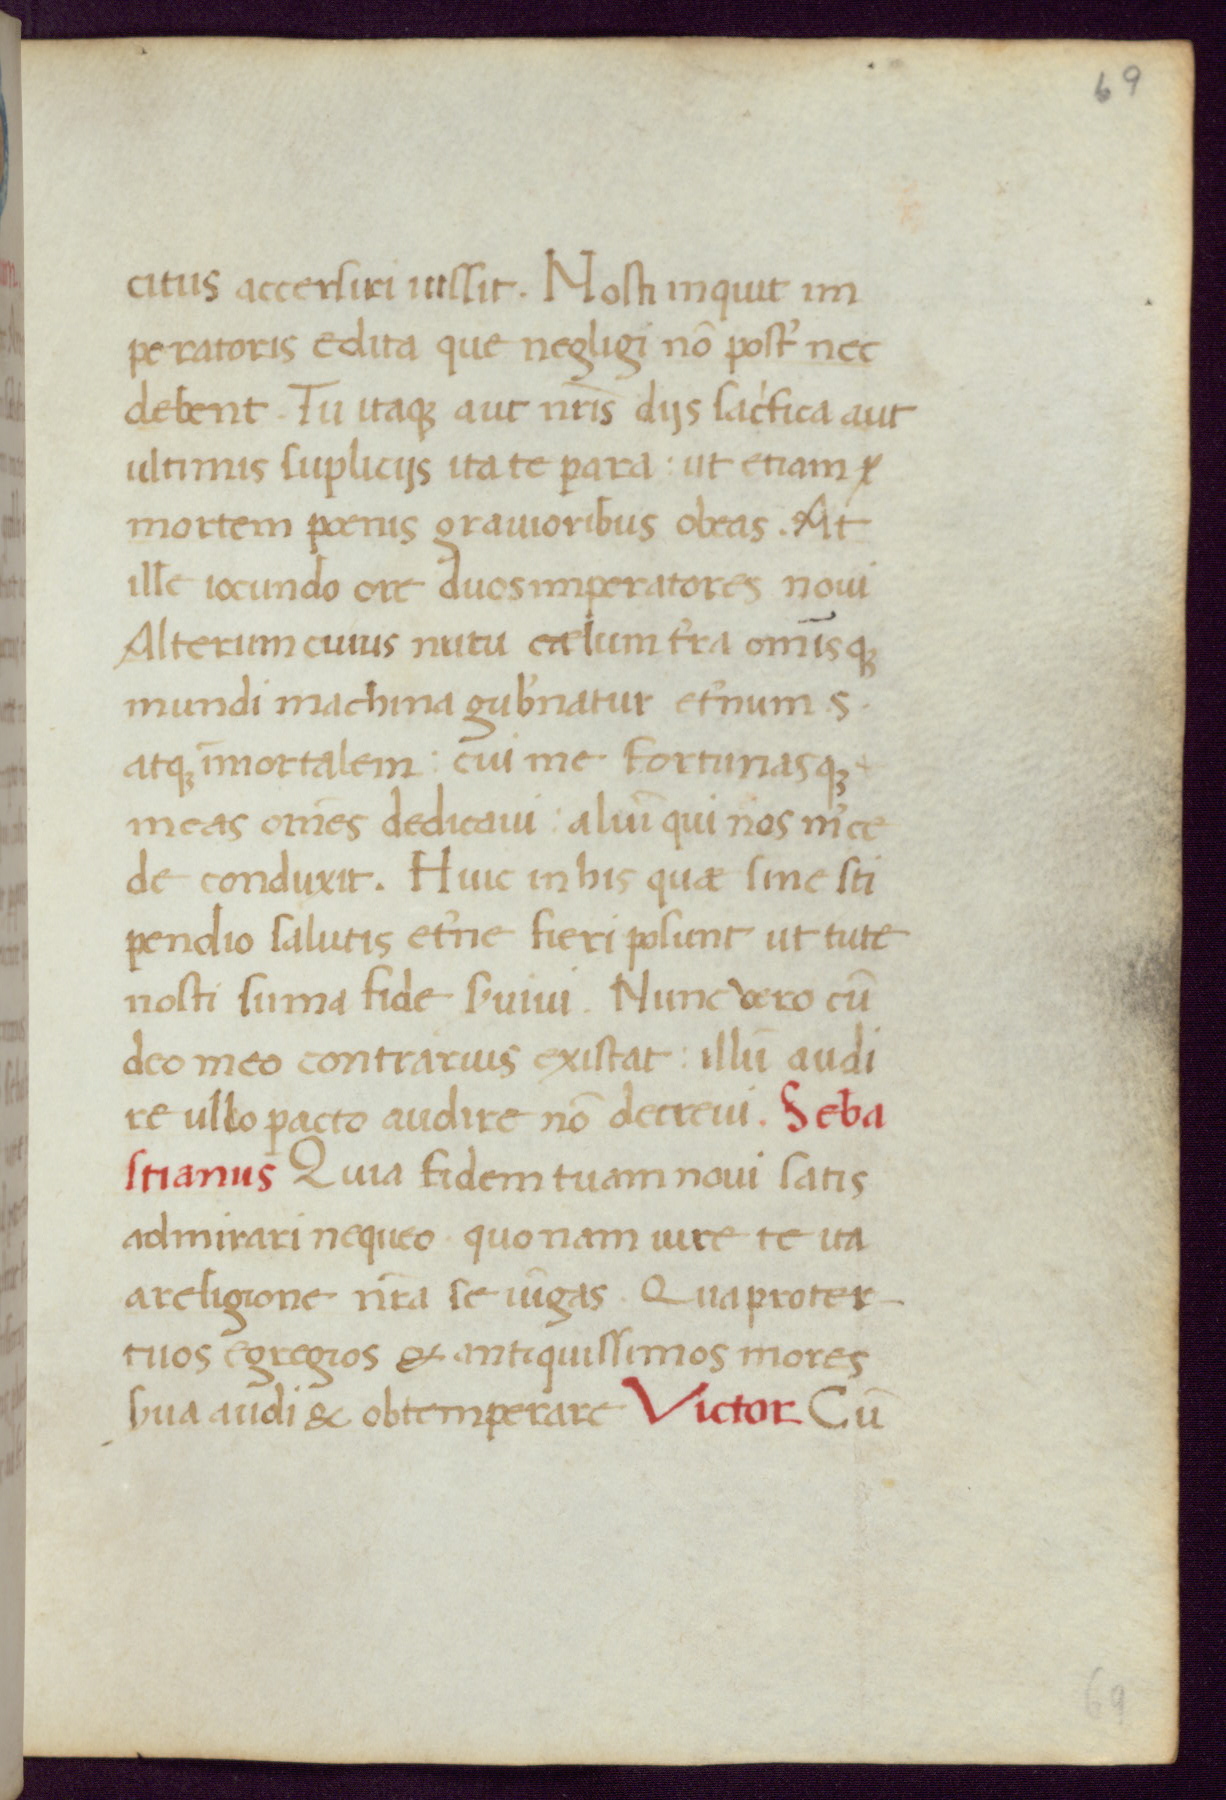 69
citus accersiri iussit. Nosti inquit im
peratoris edita que negligi nō post̓ nec
debent. Tu itaq; aut nr̄is dijs sac̓fica aut
ultimis suplicijs ita te para: ut etiam p̱
mortem pœnis grauioribus obeas. At
ille iocundo ore duos imperatores noui
Alterum cuius nutu cælum t̓ra om̄isq;
mundi machina gub̓natur et̓num s.
atq; īmortalem: cui me fortunasq;
meas om̄es dedicaui: aliū qui nos m̓ce
de conduxit. Huic in his quæ sine sti
pendio salutis et̓ne fieri posunt ut tute
nosti suma fide s̓uiui. Nunc vero cū
deo meo contrarius existat: illū audi
re ullo pacto audire nō decreui. Seba
stianus Quia fidem tuam noui satis
admirari nequeo quonam iure te ita
a religione nr̄a se iūgas. Quapro ter
tuos egregios & antiquissimos mores
s̓ua audi & obtemperare Victor Cū
69